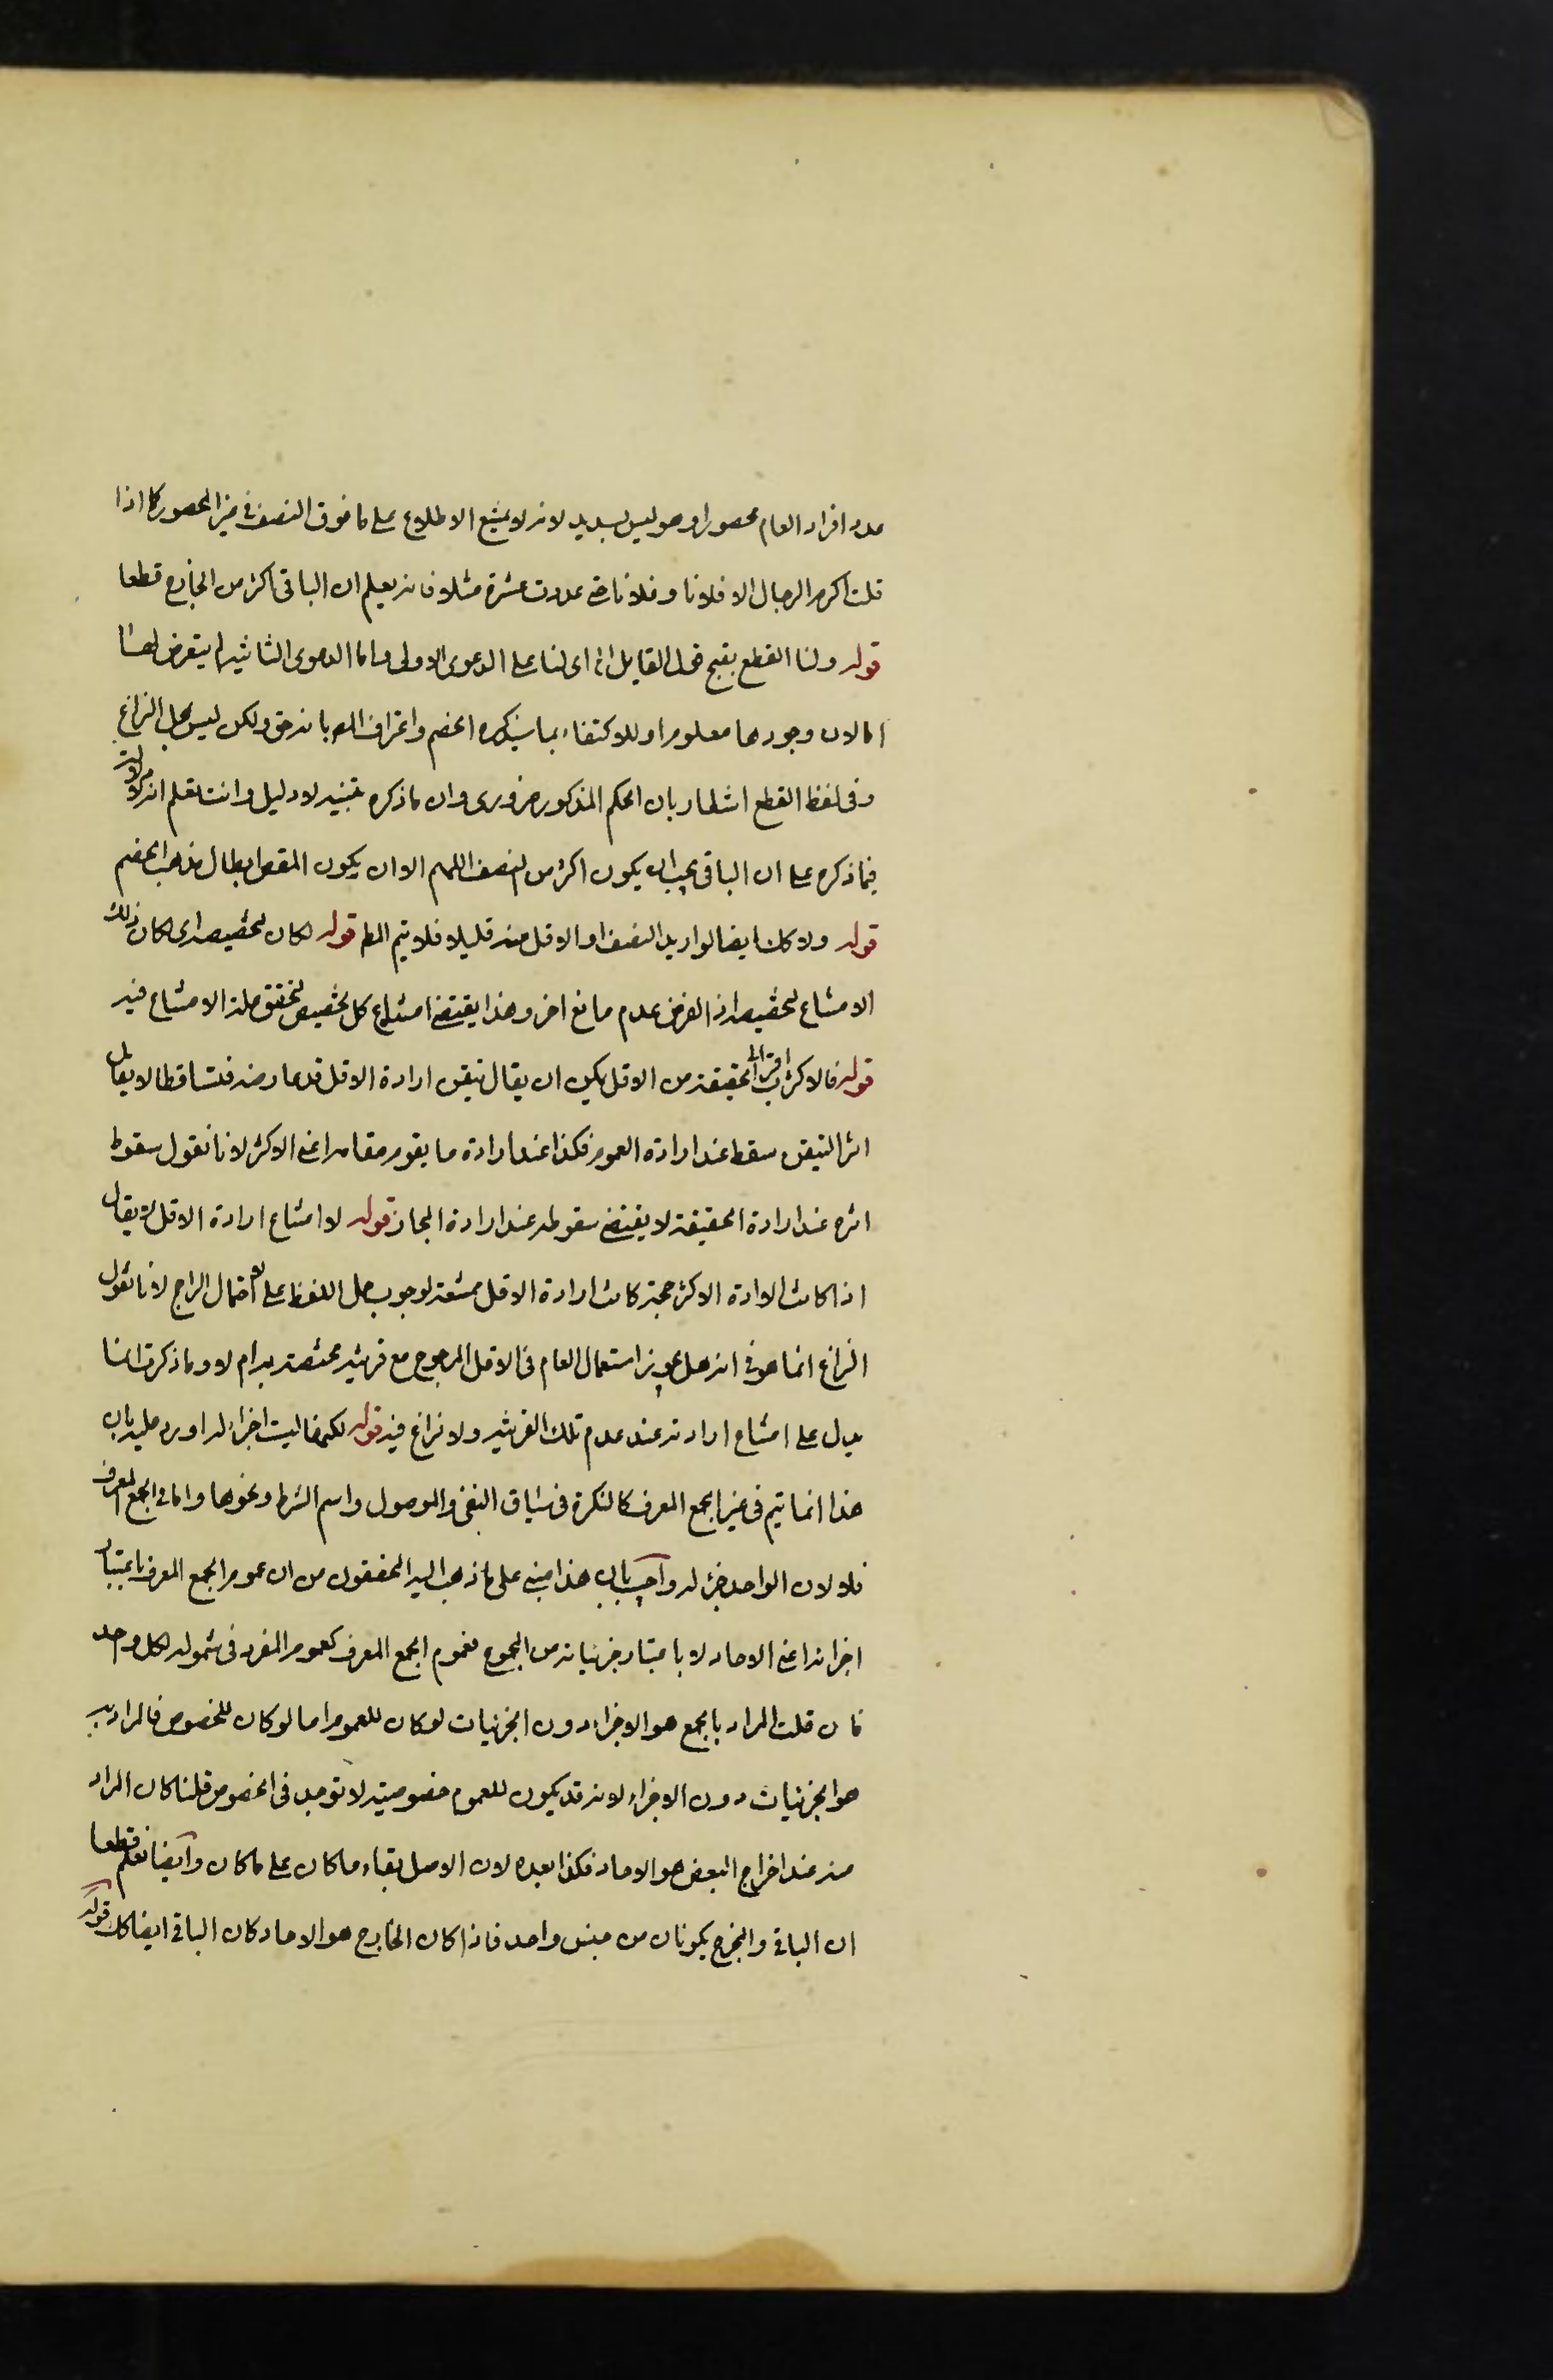 عدد افراد العام محصورا وهو ليس بسديد لانه لا يمتنع الاطلاع على ما فوق النصف في غير المحصور كما اذا
قلت اكرم الرجال الا فلانا وفلانا حتى عددت عشرة مثلا فانه يعلم ان الباقى اكثر من الخارج قطعا
قوله ولنا القطع بقبح قول القايل اه اى لنا على الدعوى الاولى واما الدعوى الثانية لم يتعرض لها
اما لان وجودها معلوم او للاكتفاء بما سيذكره الخصم واعتراف المص بانه حق ولكن ليس محل النزاع
وفى لفظ القطع اشعار بان الحكم المذكور ضرورى وان ما ذكره تنبيه لا دليل وانت تعلم انه لا دلالة
فيما ذكره على ان الباقى يجب ان يكون اكثر من النصف اللهم الا ان يكون المقص ابطال مذهب الخصم
قوله ولا كان ايضا لو اريد النصف او الاقل منه قليلا فلا يتم المط قوله لكان لتخصيصه اى لكان ذلك
الامتناع لتخصيصه اذ الفرض عدم مانع اخر وهذا يقتضى امتناع كل تخصيص لتحقق علة الامتناع فيه
قوله فالاكثر اقرب الى الحقيقة من الاقل يمكن ان يقال تيقن ارادة الاقل قد عارضه فتساقطا لا يقال
اثر التيقن سقط عند ارادة العموم فكذا عند ارادة ما يقوم مقامه اعنى الاكثر لانا نقول سقوط
اثره عند ارادة الحقيقة لا يقتضى سقوطه عند ارادة المجاز قوله لا امتناع ارادة الاقل لا يقال
اذا كانت الارادة الاكثر راجحة كانت ارادة الاقل ممتنعة لوجوب حمل اللفظ على الاحتمال الراجح لانا نقول
النزاع انما هو فى انه هل يجوز استعمال العام فى الاقل المرجوح مع قرينة مختصة به ام لا وما ذكرته انما
يدل على امتناع ارادته عند عدم تلك القرينة ولا نزاع فيه قوله لكنها ليست اجزاء له اورد عليه بان
هذا انما يتم فى غير الجمع المعرف كالنكرة فى سياق النفى والموصول واسم الشرط ونحوها واما فى الجمع المعرف
فلا لان الواحد جزء له واجيب بان هذا مبنى على ما ذهب اليه المحققون من ان عموم الجمع المعرف باعتبار
اجزائه اعنى الاحاد لا باعتبار جزئياته من الجموع فعموم الجمع المعرف كعموم المفرد فى شموله لكل واحد
فان قلت المراد بالجمع هو الاجزاء دون الجزئيات لو كان للعموم اما لو كان للخصوص فالمراد به
هو الجزئيات دون الاجزاء لانه قد يكون للعموم خصوصية لا توجد فى الخصوص قلنا كان المراد
منه عند اخراج البعض هو الاحاد فكذا بعده لان الاصل بقاء ما كان على ما كان وايضا نعلم قطعا
ان الباقى والمخرج يكونان من جنس واحد فاذا كان الخارج هو الاحاد كان الباقى ايضا كك قوله